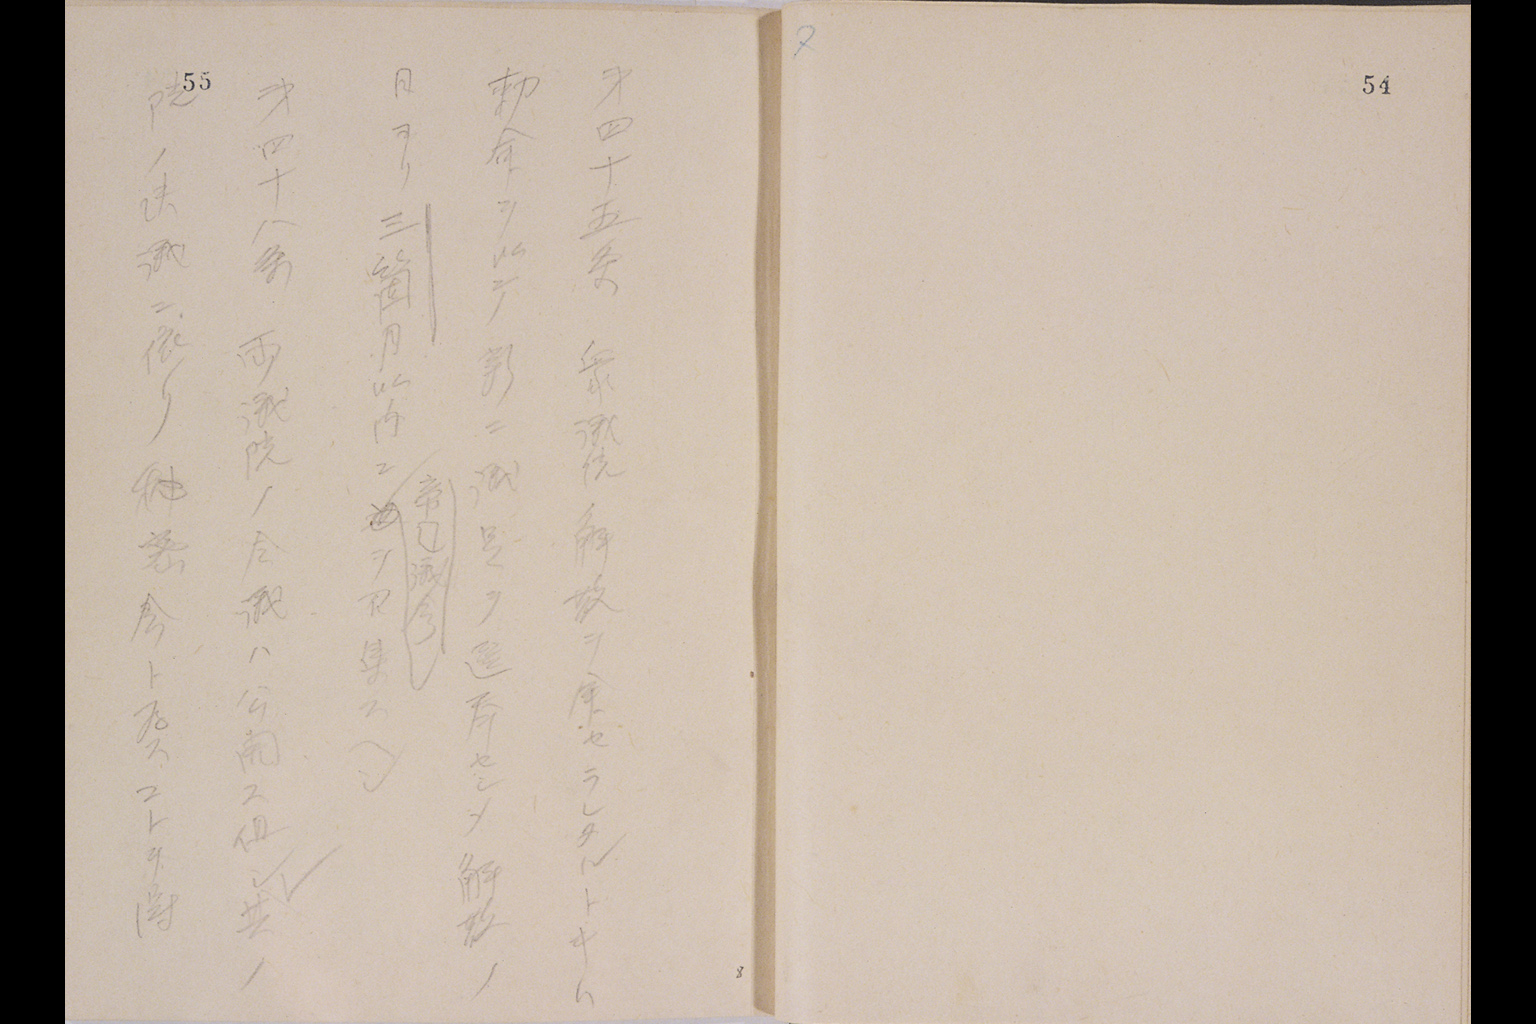 54
才四十五条 衆議院解散ヲ命セラレタルトキハ
勅命ヲ以テ新ニ議員ヲ選挙セシメ解散ノ
日ヨリ三箇月以内ニ 之ヲ召集スヘシ
帝国議会
55
才四十八条 両議院ノ会議ハ公開ス但シ其ノ
院ノ決議ニ依リ秘密会ト為スコトヲ得
8